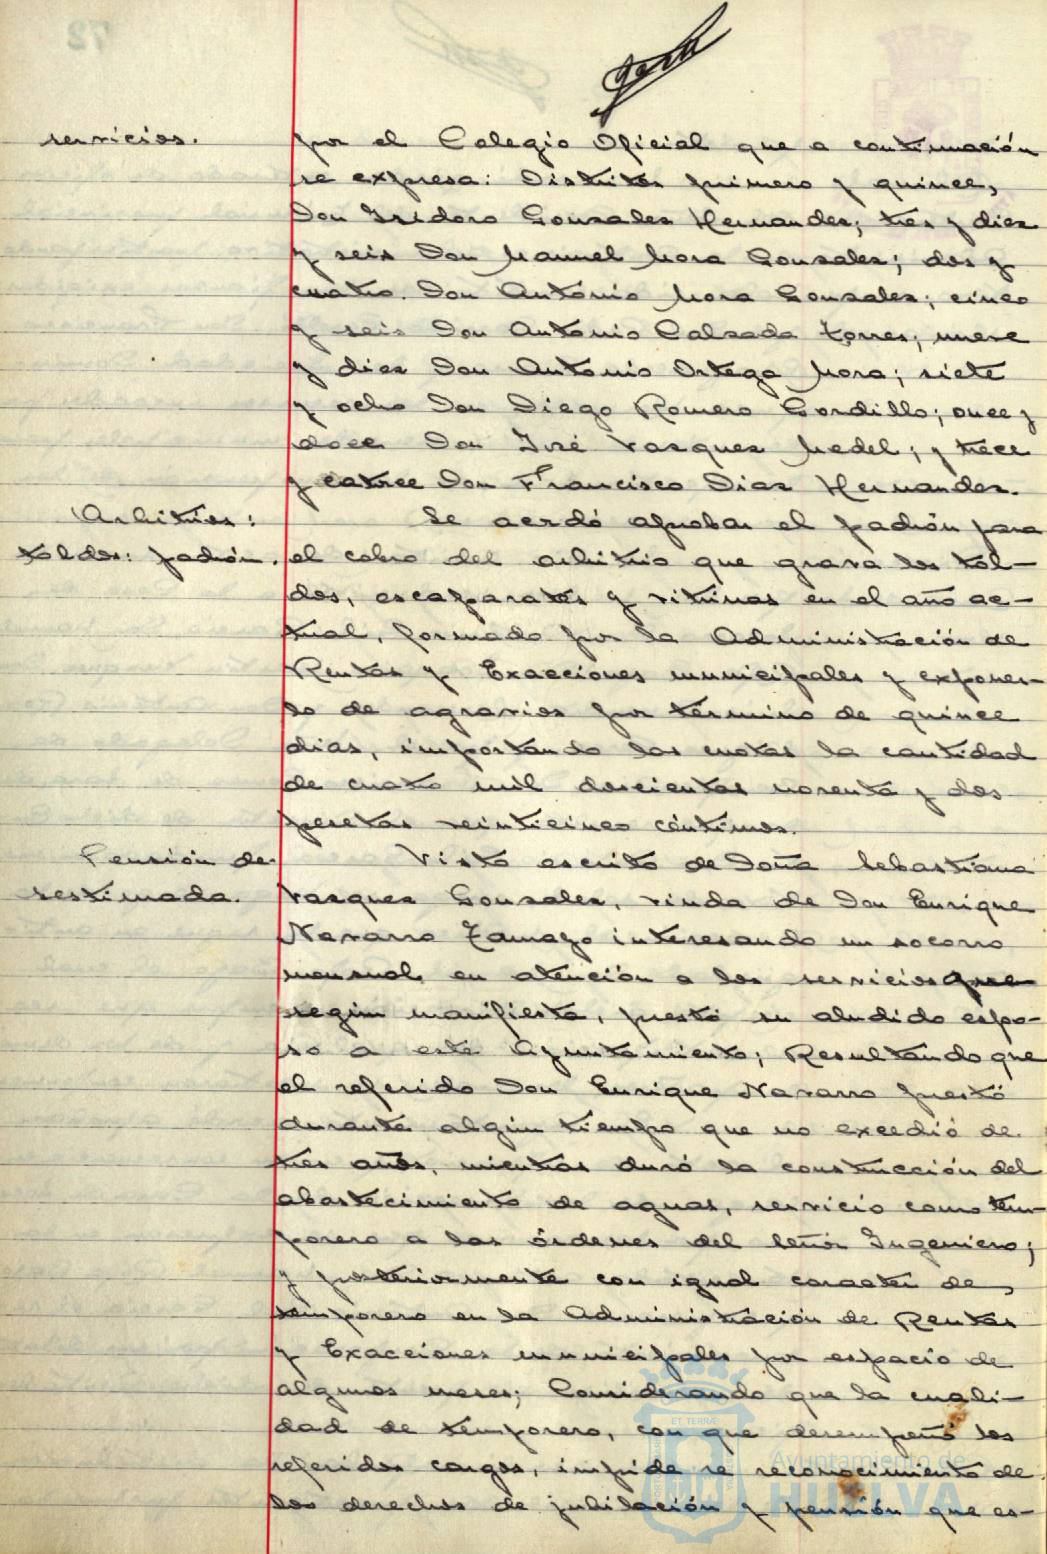 servicios.
por el Colegio Oficial que a continuación
se expresa: Distritos primero y quince,
Don Isidoro Gonzalez Hernandez; tres y diez
y seis Don Manuel Mora Gonzalez; dos y
cuatro Don Antonio Mora Gonzalez; cinco
y seis Don Antonio Calzada Torres; nueve
y diez Don Antonio Ortega Mora; siete
y ocho Don Diego Romero Gordillo; once y
doce Don José Vazquez Medel; y trece
y catorce Don Francisco Diaz Hernandez.
Arbitrios:
toldos: padrón.
Se acrdó aprobar el padrón para
el cobro del arbitrio que grava los tol-
dos, escaparates y vitrinas en el año ac-
tual, formado por la Administración de
Rentas y Exacciones municipales y expues-
to de agravios por término de quince
dias, importando las cuotas la cantidad
de cuatro mil doscientas noventa y dos
pesetas veinticinco céntimos.
Pensión de-
sestimada.
Visto escrito de Doña Sebastiana
Vazquez Gonzalez, viuda de Don Enrique
Navarro Tamayo interesando un socorro
mensual, en atención a los servicios que
según manifiesta, prestó su aludido espo-
so a este Ayuntamiento; Resultando que
el referido Don Enrique Navarro prestó
durante algún tiempo que no excedió de
tres años, mientras duró la construcción del
abastecimiento de aguas, servicio como tem-
porero a las órdenes del Señor Ingeniero;
y posteriormente con igual caracter de
temporero en la Administración de Rentas
y Exacciones municipales por espacio de
algunos meses; Considerando que la cuali-
dad de temporero, con que desempeñó los
referidos cargos, impide se reconocimiento de
los derechos de jubilación y pensión que es-
ET TERRÆ
Ayuntamiento de
HUELVA